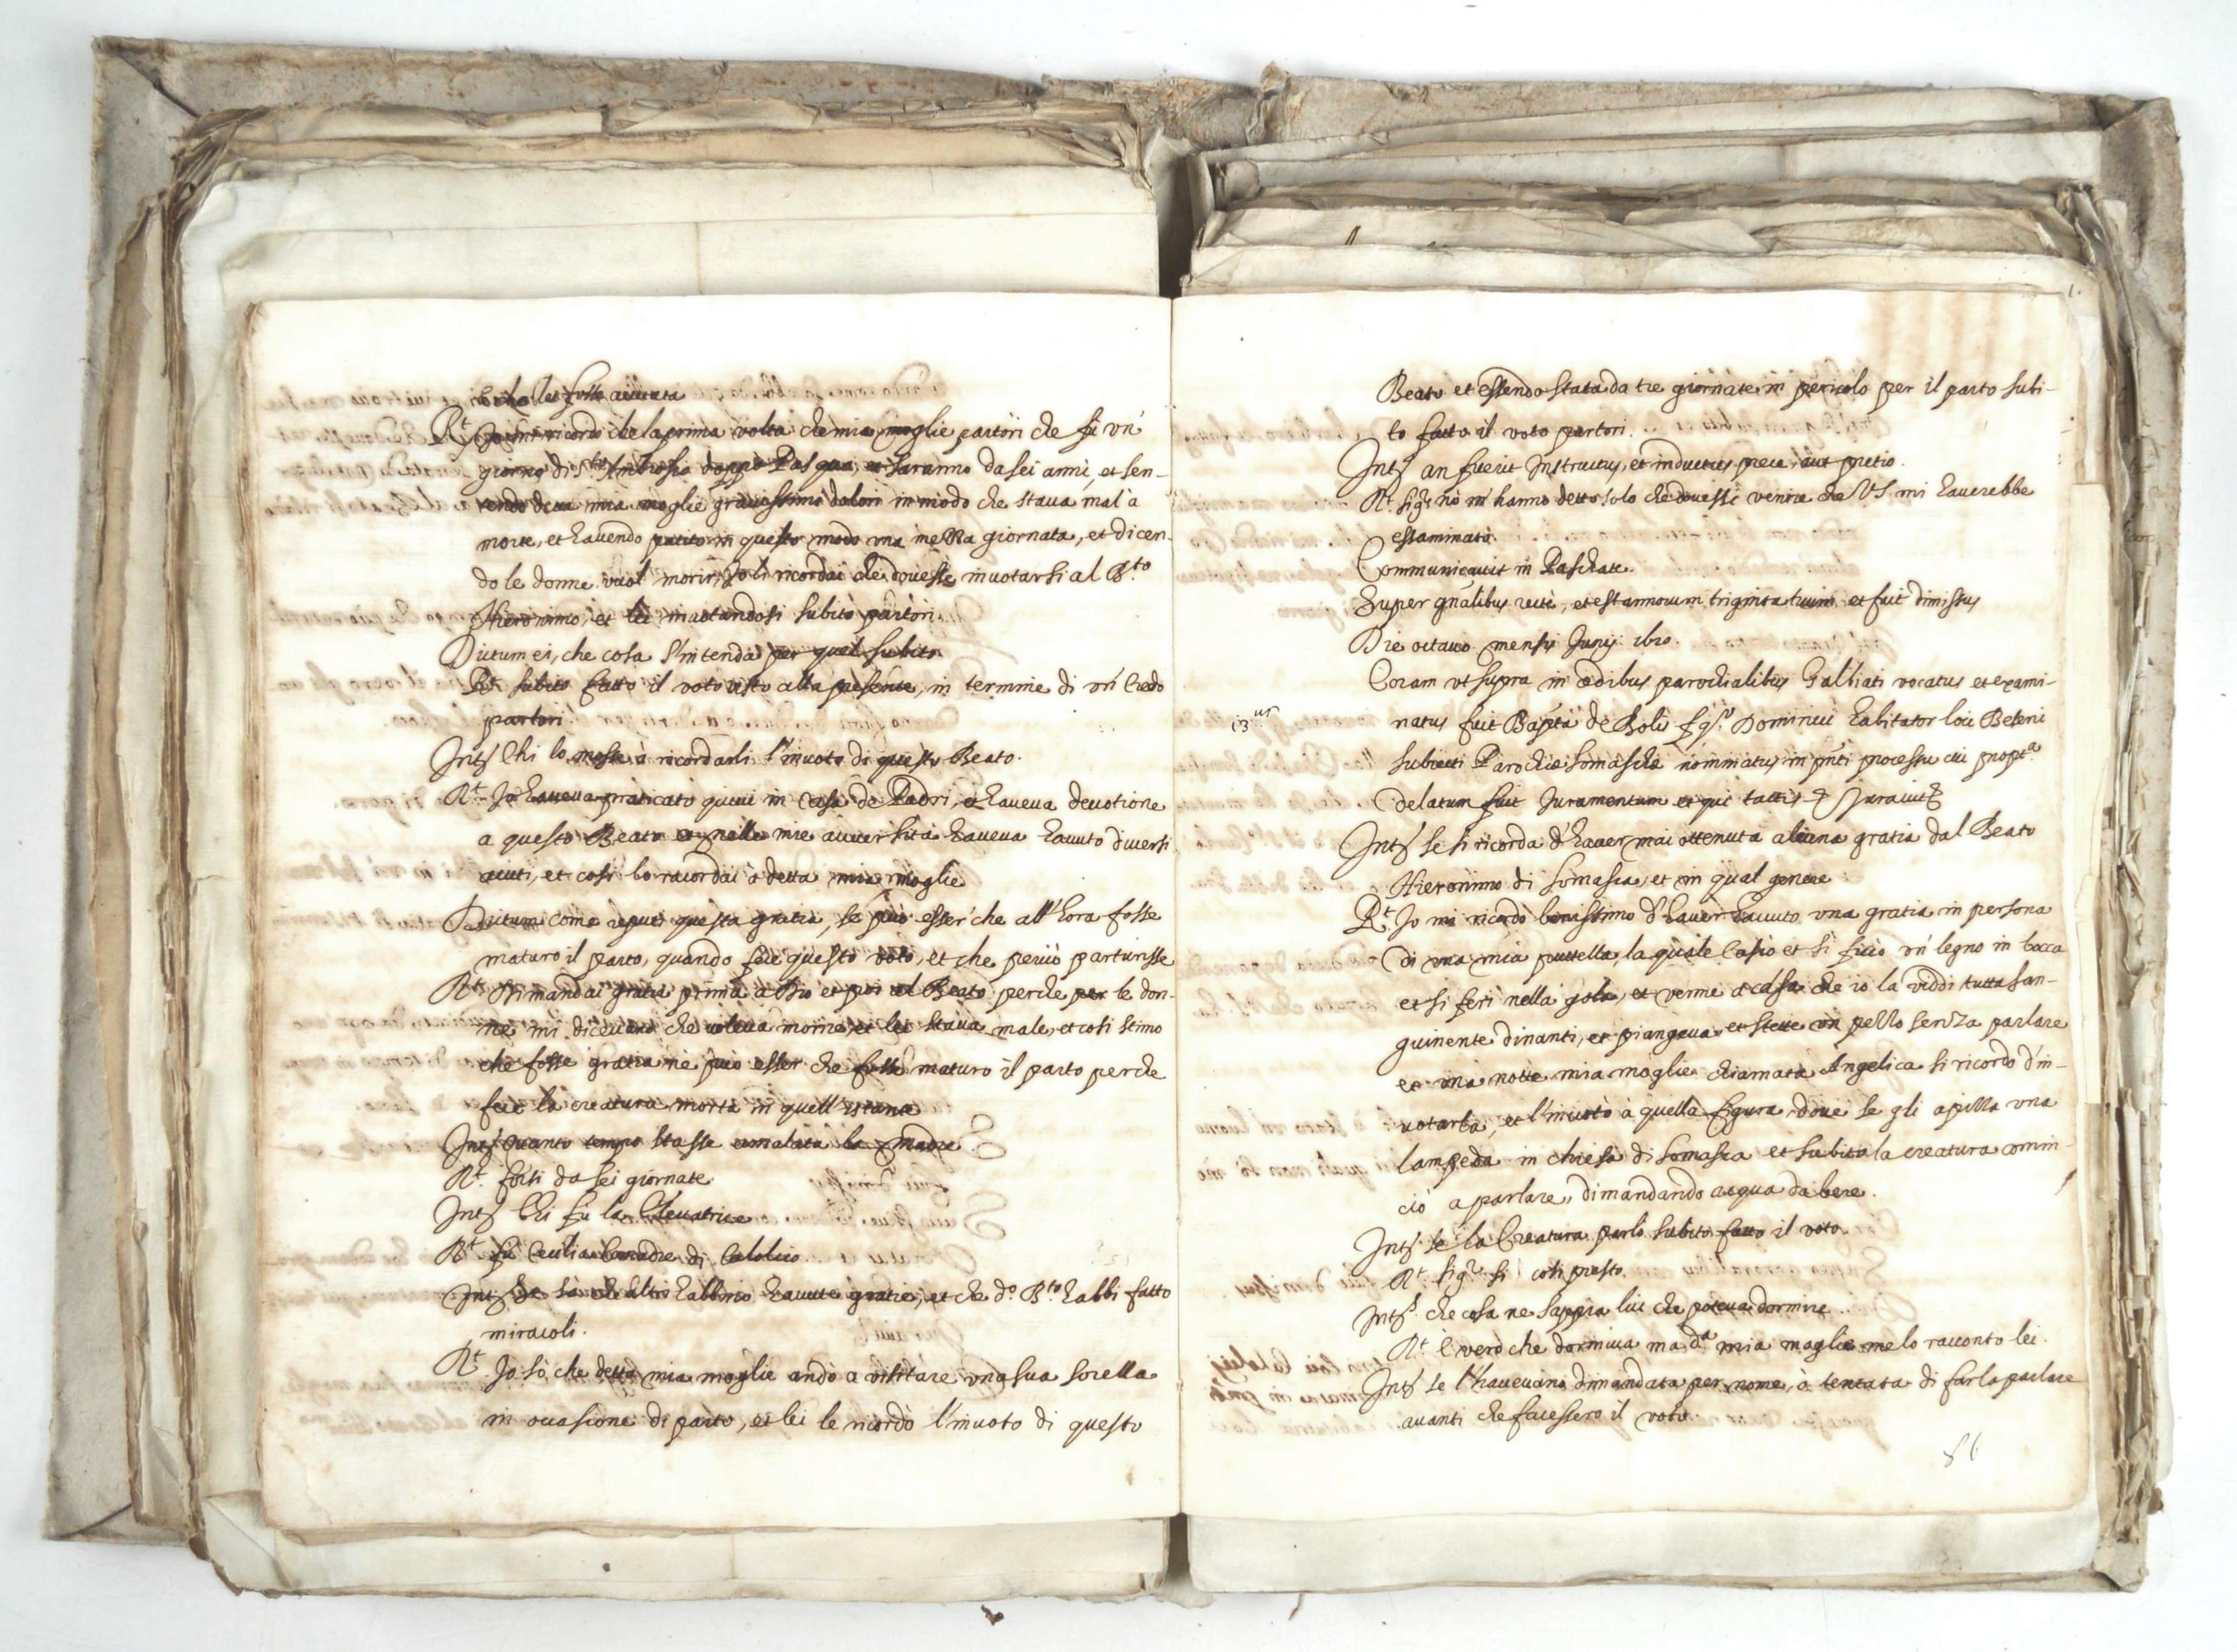 che lei fosse aiutata
Rt Jo mi ricordo che la prima volta che mia moglie partorì che fù un'
giorno di Sto Ambrosio doppò Pasqua, et saranno da sei anni, et sen-
tendo detta mia moglie gravissimi dolori in modo che stava mal' à
morte, et havendo patito in questo modo una mezza giornata, et dicen-
do le donne vuol morir, Jo li ricordai che dovesse invotarsi al B.to
Hieronimo, et lei invotandosi subitò partorì.
Dictum ei, che cosa s'intenda per quel subito
Rt subito fatto il voto visto alla presente, in termine di un' Credo
partorì.
Intṣ Chi lo mosse à ricordarli l'invoto di questo Beato.
Rt Jo haveva praticato quivi in Casa de Padri, et haveva devotione
a questo Beato et nelle mie aversità haveva havuto diversi
aiuti, et così lo racordai à detta mia moglie
Dictum come reputi questa gratia, se può esser' che all'hora fosse
maturo il parto, quando fece questo voto, et che perciò parturisse
Rt Dimandai gratia prima à Dio et poi al Beato perche per le don-
ne mi dicevano che voleva morire, et lei stava male, et così stimo
che fosse gratia nè può esser che fosse maturo il parto perche
fece la creatura morta in quell'istante
Intṣ Quanto tempo stasse amalata la madre
Rt. forsi da sei giornate.
Intṣ Chi fu la Elevatrice
Rt fù Cecilia Comadre di Calolcio.
Intṣ Se sà che altri habbino havute gratie, et che d.o B.to habbi fatto
miracoli.
Rt. Jo sò che detta mia moglie andò a visitare una sua sorella
in occasione di parto, et lei le ricordò l'invoto di questo
Beato et essendo stata da tre giornate in pericolo per il parto subi-
to fatto il voto partorì.
Intṣ an fuerit Instructus, et inductus prece, aut pretio.
Rt. sigr nò m'hanno detto solo che dovessi venire che V.S. mi haverebbe
essaminato.
Communicavit in Paschate.
Super gnalibus rectè, et est annorum triginta trium et fuit dimissus
Die octavo mensis Junij 1620.
Coram ut supra in ædibus parochialibus Galbiati vocatus et exami-
13us
natus fuit Bapta de Bolis f. q. Dominici habitator loci Beseni
subiecti Parochiæ Somaschæ nominatus in pnti processu cui propt.a
delatum fuit Juramentum et qui tactis Juravit
Intṣ se si ricorda d'haver mai ottenuta alcuna gratia dal Beato
Hieronimo di Somasca, et in qual genere
Rt Jo mi ricordo benissimo d'haver havuto una gratia in persona
di una mia puttella, la quale cascò et si ficcò un' legno in bocca
et si ferì nella gola, et venne à casa che io la viddi tutta san-
guinente dinanti, et piangeva, et stette un' pezzo senza parlare
et una notte mia moglie chiamata Angelica si ricordò d'in-
votarla, et l'invotò à quella figura, dove se gli apizza una
lampeda in chiesa di Somasca et subito la creatura comin-
ciò a parlare, dimandando acqua da bere.
Intṣ se la Creatura parlò subito fatto il voto.
Rt sigr. si così presto.
Intṣ. che cosa ne sappia lui che poteva dormire.
Rt è verò che dormiva ma d.a mia moglie me lo raccontò lei.
Intṣ se l'havevano dimandata per nome, ò tentata di farla parlare
avanti che facessero il voto.
86